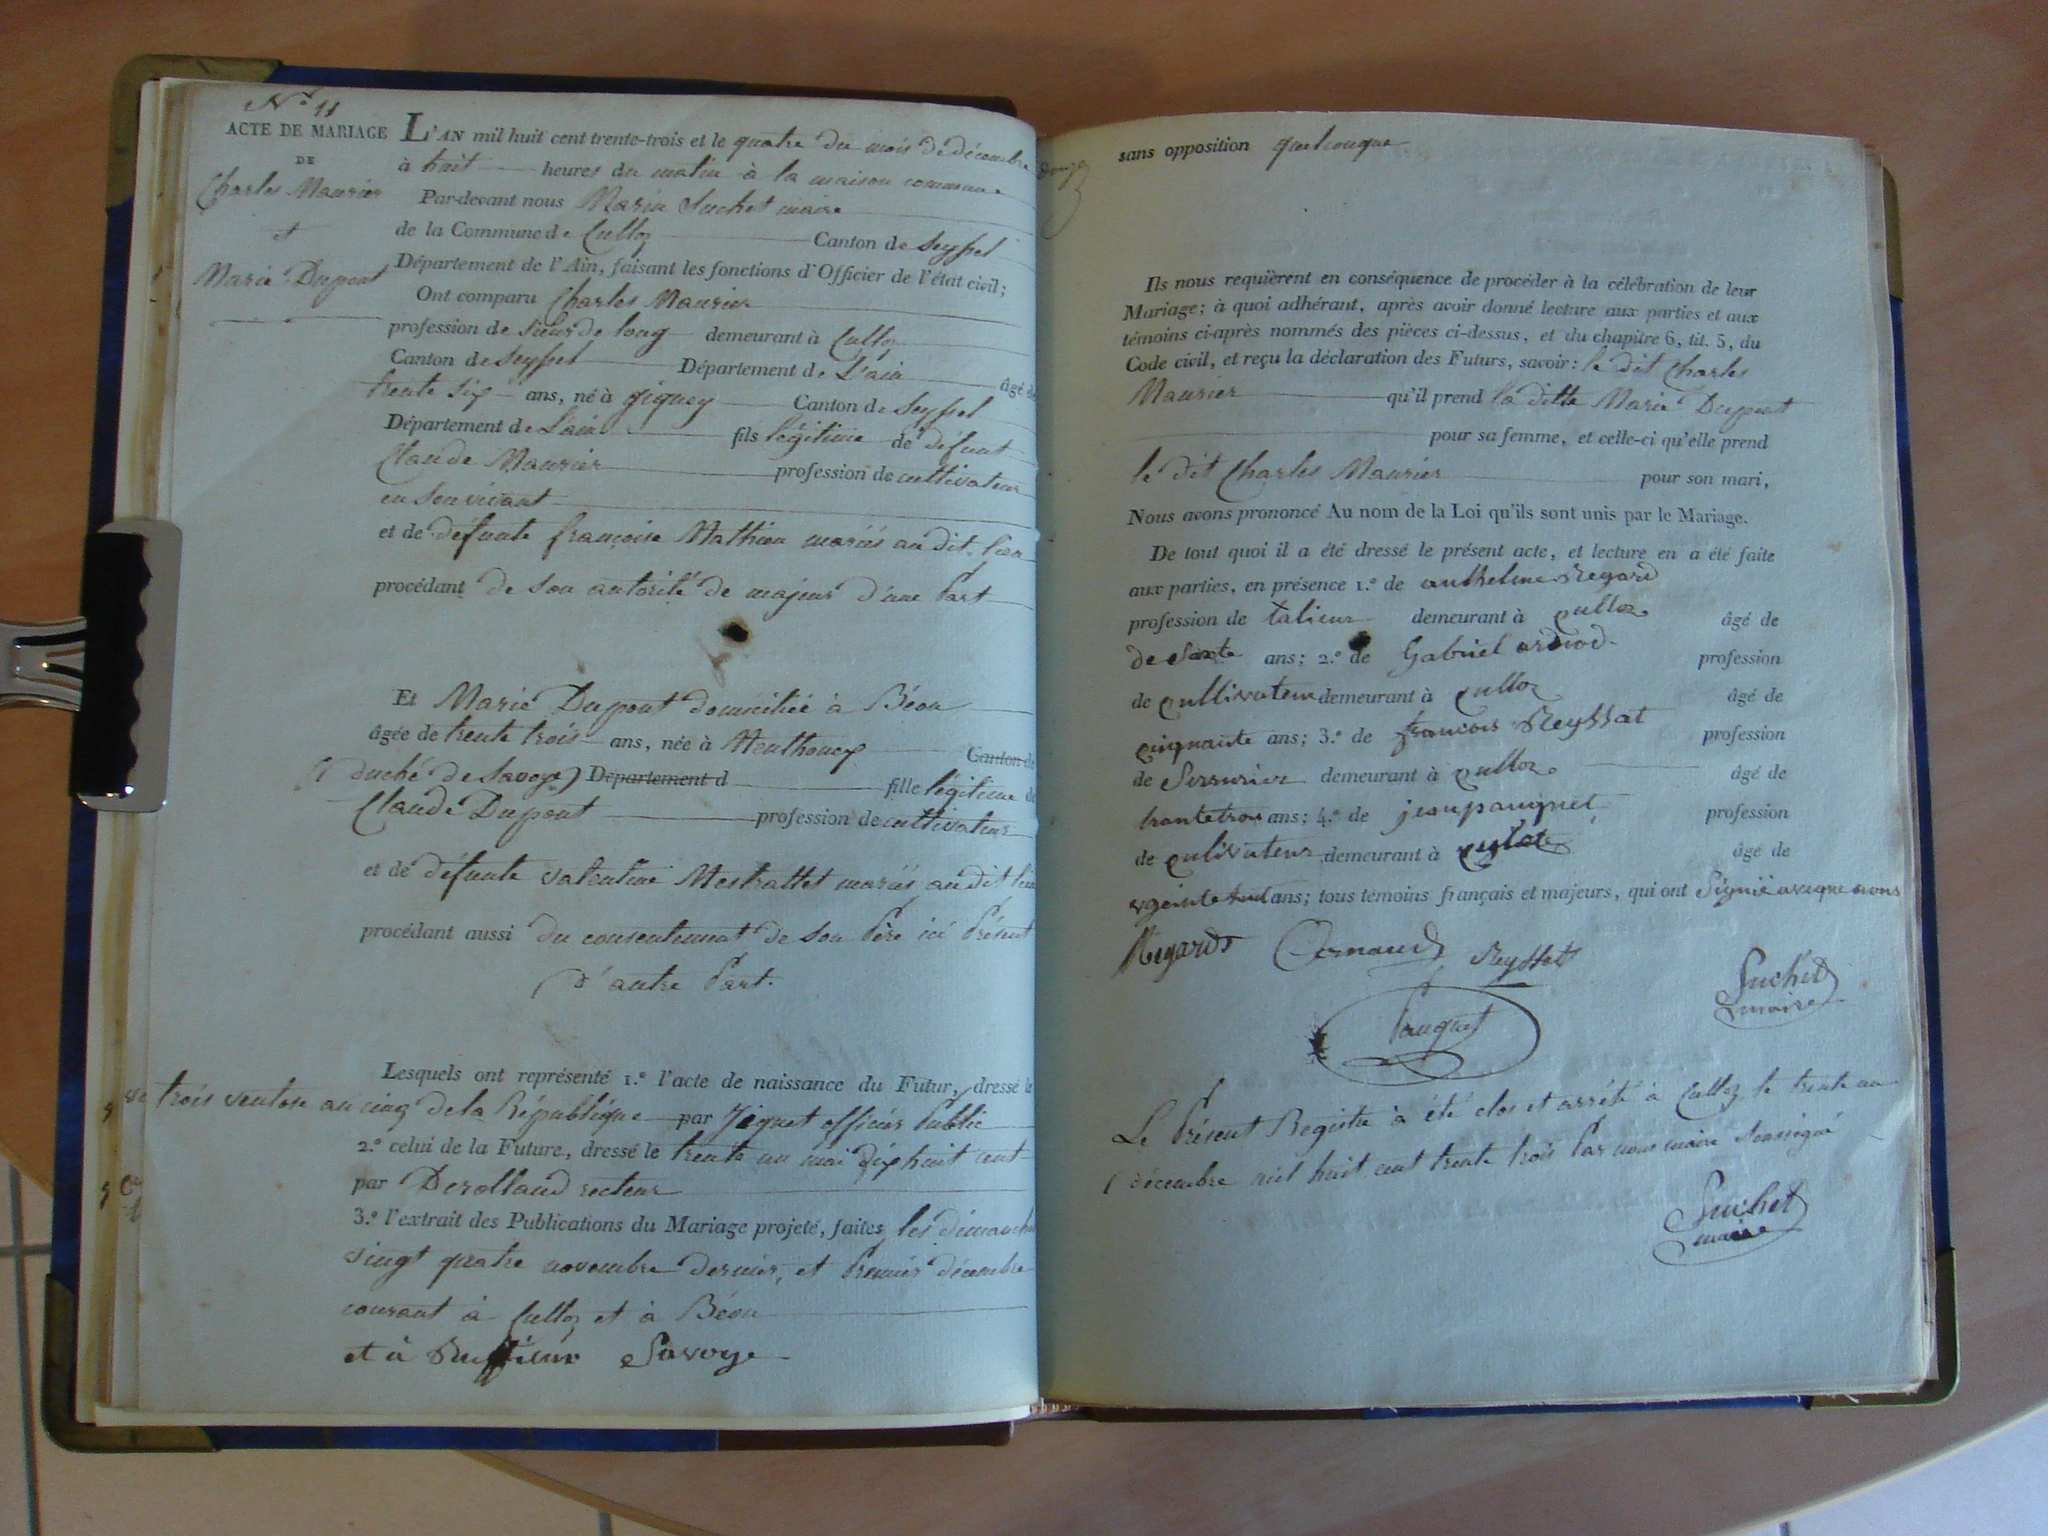 N.° 11
ACTE DE MARIAGE
DE
Charles Maurier
et
Marie Dupont
L'AN mil huit cent trente-trois et le quatre du mois de décembre
à huit heures du matin à la maison commune
Par-devant nous Marin Suchet maire
de la Commune de Culloz Canton de Seyssel
Département de l'Ain, faisant les fonctions d'Officier de l'état civil;
Ont comparu Charles Maurier
profession de sieur de long demeurant à Culloz
Canton de Seyssel Département de L'ain âgé de
trente six ans, né à Canton de Seyssel
Département de L'ain fils légitime de défunt
Claude Maurier profession de cultivateur
en son vivant
et de défunte françoise Mathieu mariés au dit lieu
procédant de son autorité de majeur d'une Part
Et Marie Dupont domiciliée à Béon
âgée de trente trois ans, née à Menthonex Canton de
(duché de Savoye) Département d fille légitime de
Claude Dupont profession de cultivateur
et de défunte valentine Mestrallet mariés au dit lieu
procédant aussi du consentement de son Père ici Présent
d'autre Part.
Lesquels ont représenté 1.° l'acte de naissance du Futur, dressé le
trois ventose an cinq de la République par officier Public
2.° celui de la Future, dressé le trente un mai dix huit cent
par Derolland recteur
3.° l'extrait des Publications du Mariage projeté, faites les dimanches
vingt quatre novembre dernier, et Premier décembre
courant à Culloz et à Béon
et à Ruffieux Savoye
sans opposition quelconque
Ils nous requièrent en conséquence de procéder à la célébration de leur
Mariage; à quoi adhérant, après avoir donné lecture aux parties et aux
témoins ci-après nommés des pièces ci-dessus, et du chapitre 6, tit. 5, du
Code civil, et reçu la déclaration des Futurs, savoir: le dit Charles
Maurier qu'il prend la ditte Marie Dupont
pour sa femme, et celle-ci qu'elle prend
le dit Charles Maurier pour son mari,
Nous avons prononcé Au nom de la Loi qu'ils sont unis par le Mariage.
De tout quoi il a été dressé le présent acte, et lecture en a été faite
aux parties, en présence 1.° de anthelme Regard
profession de talieur demeurant à culloz âgé de
ans; 2.° de Gabriel profession
de cultivateur demeurant à culloz âgé de
cinquante ans; 3.° de francois Reyssat profession
de Serrurier demeurant à culloz âgé de
trantetrois ans; 4.° de profession
de cultivateur demeurant à âgé de
ans; tous témoins français et majeurs, qui ont Signié avecque nous
Regard Ornaud Reyssat
Suchet
maire
Pauquet
Le Présent Registre à été clos et arrété à Culloz le trente un
décembre mil huit cent trente trois Par nous maire soussigné
Suchet
maire